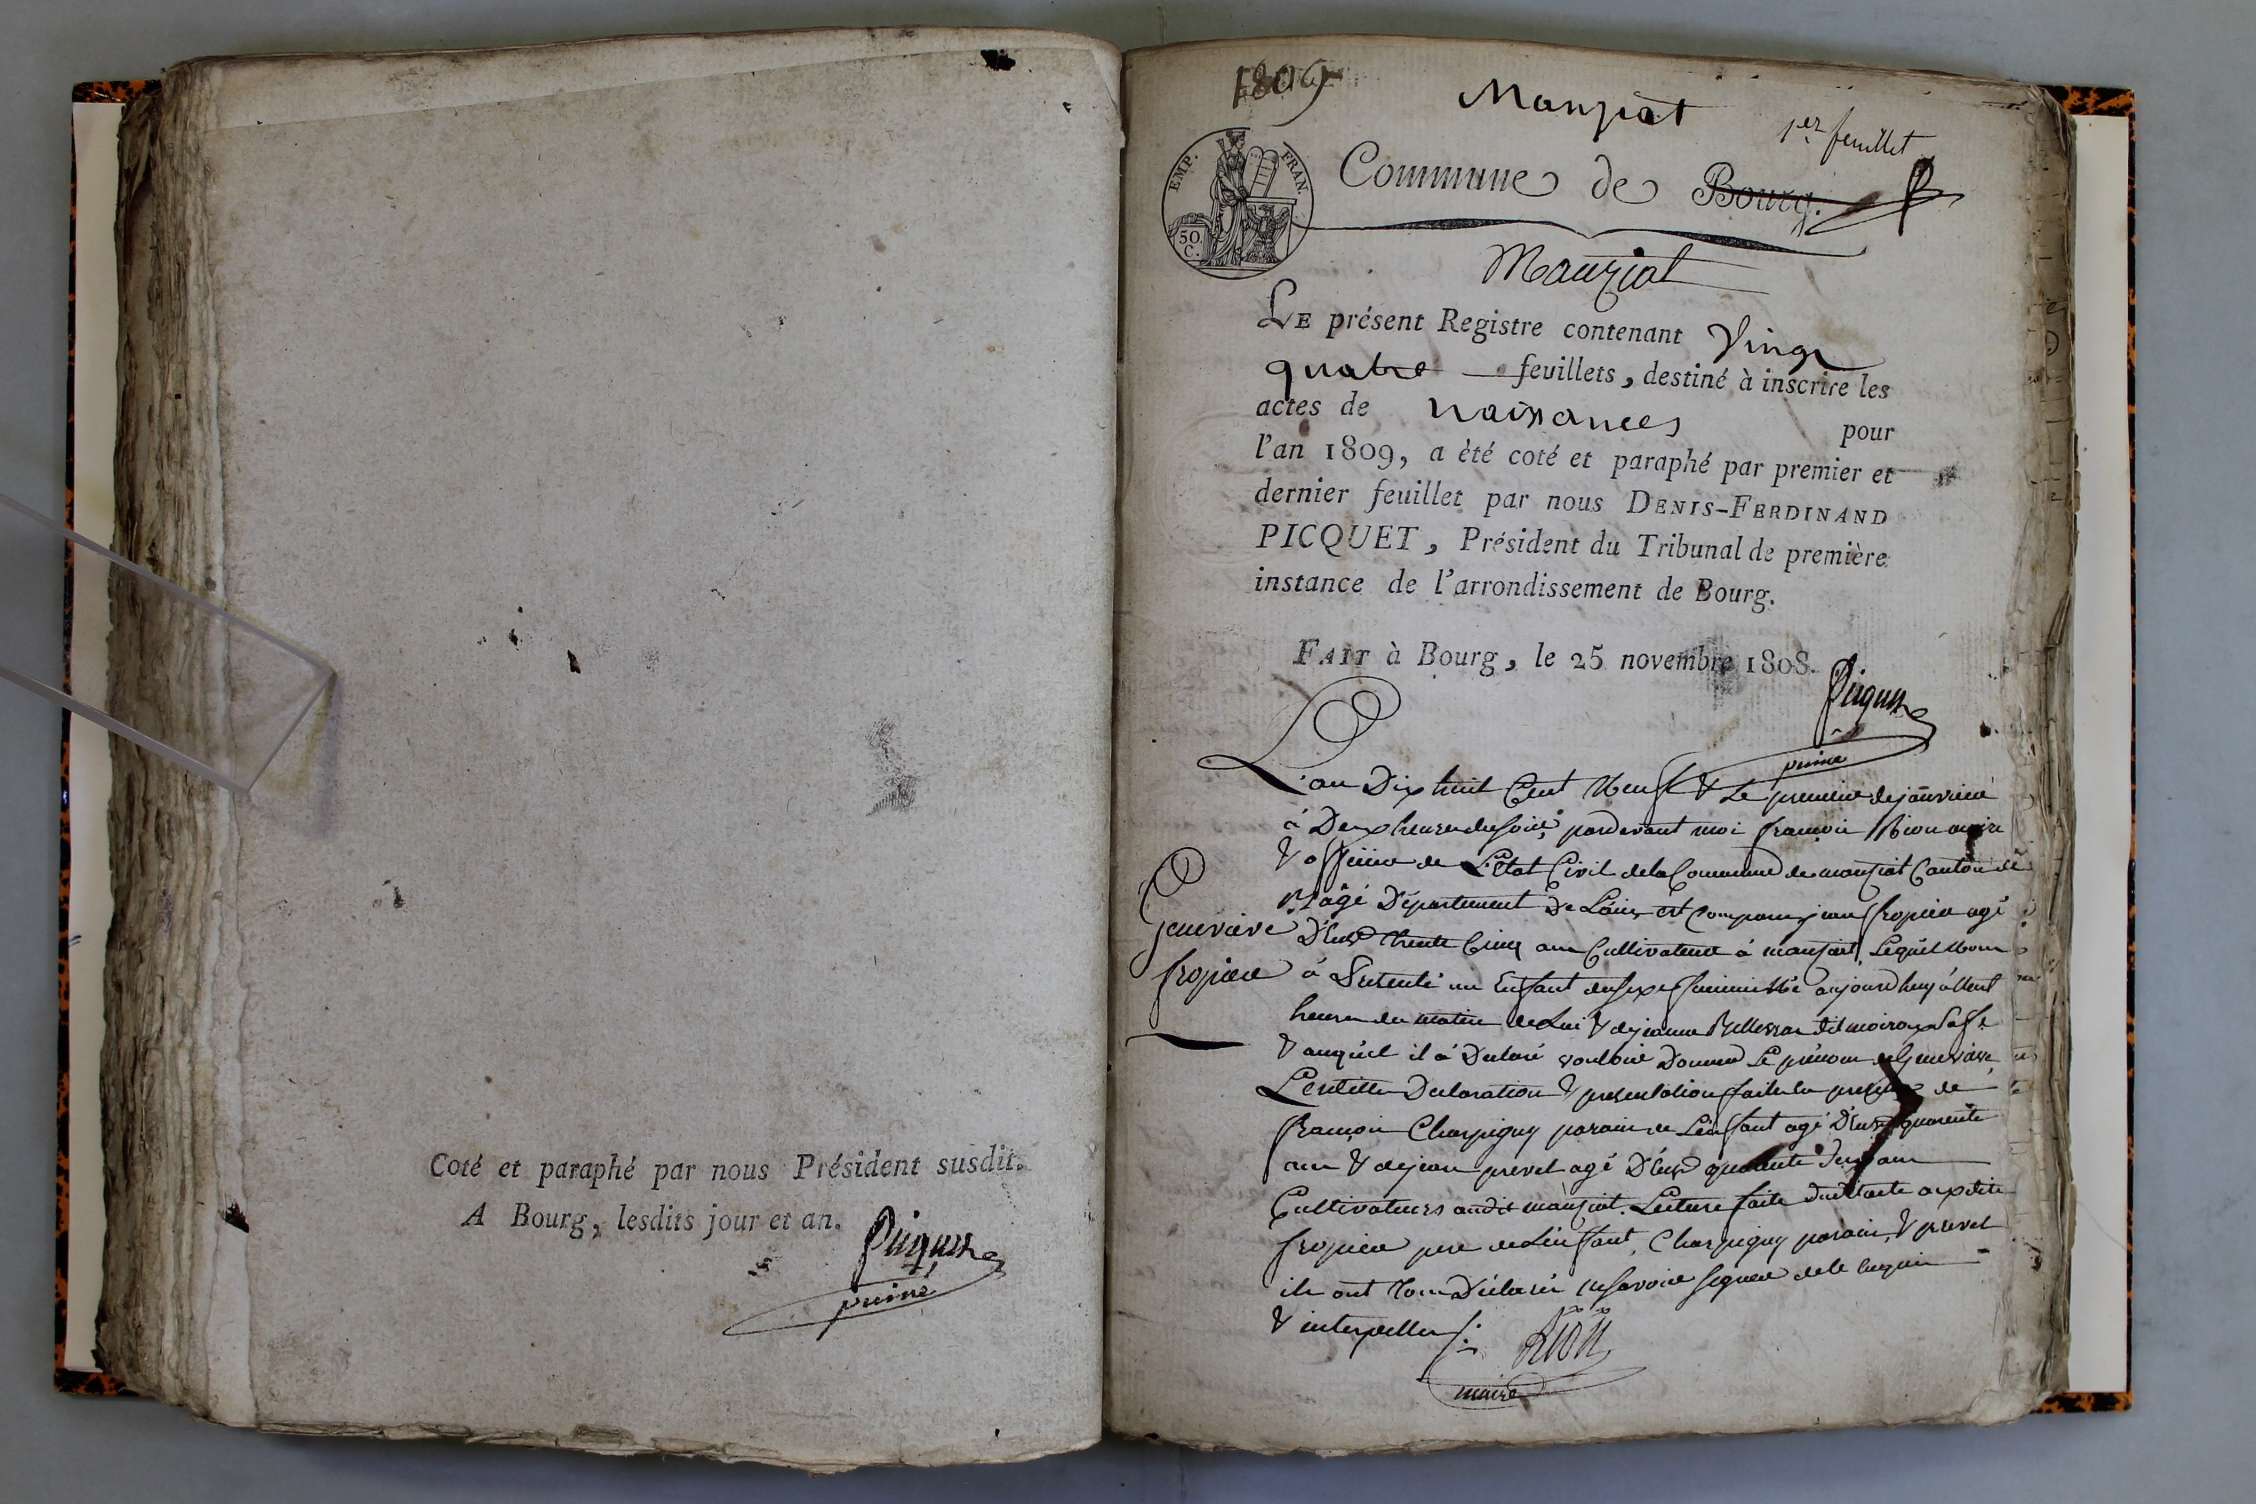 Coté et paraphé par nous Président susdit.
A Bourg, lesdits jour et an.
Picquet
1809
Manziat
1er feuillet
EMP. FRAN.
50 C.
Commune de Bourg.
Manziat
LE présent Registre contenant Vingt
quatre feuillets, destiné à inscrire les
actes de naissances pour
l'an 1809, a èté coté et paraphé par premier et
dernier feuillet par nous DENIS-FERDINAND
PICQUET, Président du Tribunal de première
instance de l'arrondissement de Bourg.
FAIT à Bourg, le 25 novembre 1808.
Picquet
L'an Dix huit Cent Neuf & Le premier de janvier
à Deux heures du soir, pardevant moi françois Rion maire
& officier de L'Etat Civil de la Commune de manziat Canton de
Bâgé Département De L'ain est comparu jean fropier agé
D'Env trente Cinq ans Cultivateur à manziat, Lequel Nous
à Présenté un Enfant du sexe feminin né aujourd huy à
heures du matin de Lui & de jeanne dit
& auquel il à Déclaré vouloir Donner Le prénom de Genevieve
Declaration & presentation faites en presence de
françois Charpigny parain de L'enfant agé D'Env quarante
ans & de jean prevel agé D'Env quarante Deux ans
Cultivateurs audit manziat. Lecture faite
fropier pere de L'enfant, Charpigny parain, & prevel
ils ont Tous Déclaré ne savoir signer de ce
& interpellés
Rion
maire
Genevieve
fropier